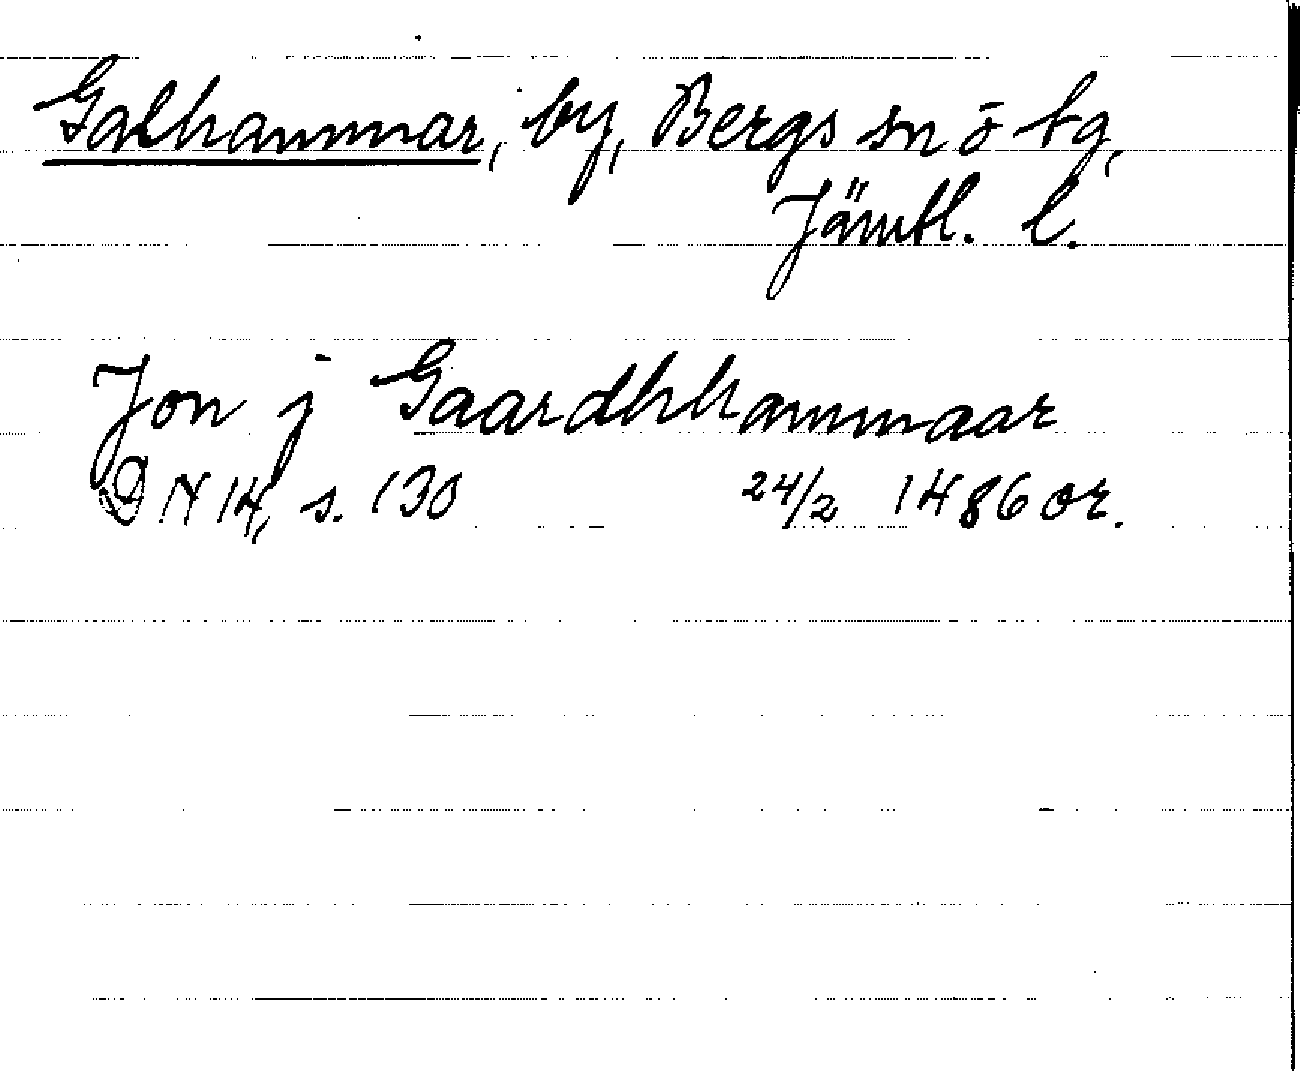 Galhammar, by, Bergs sn o tg,
Jämtl. l.
Jon j Gaardhhammaar
DN 14, s. 130 24/2 1486 or.